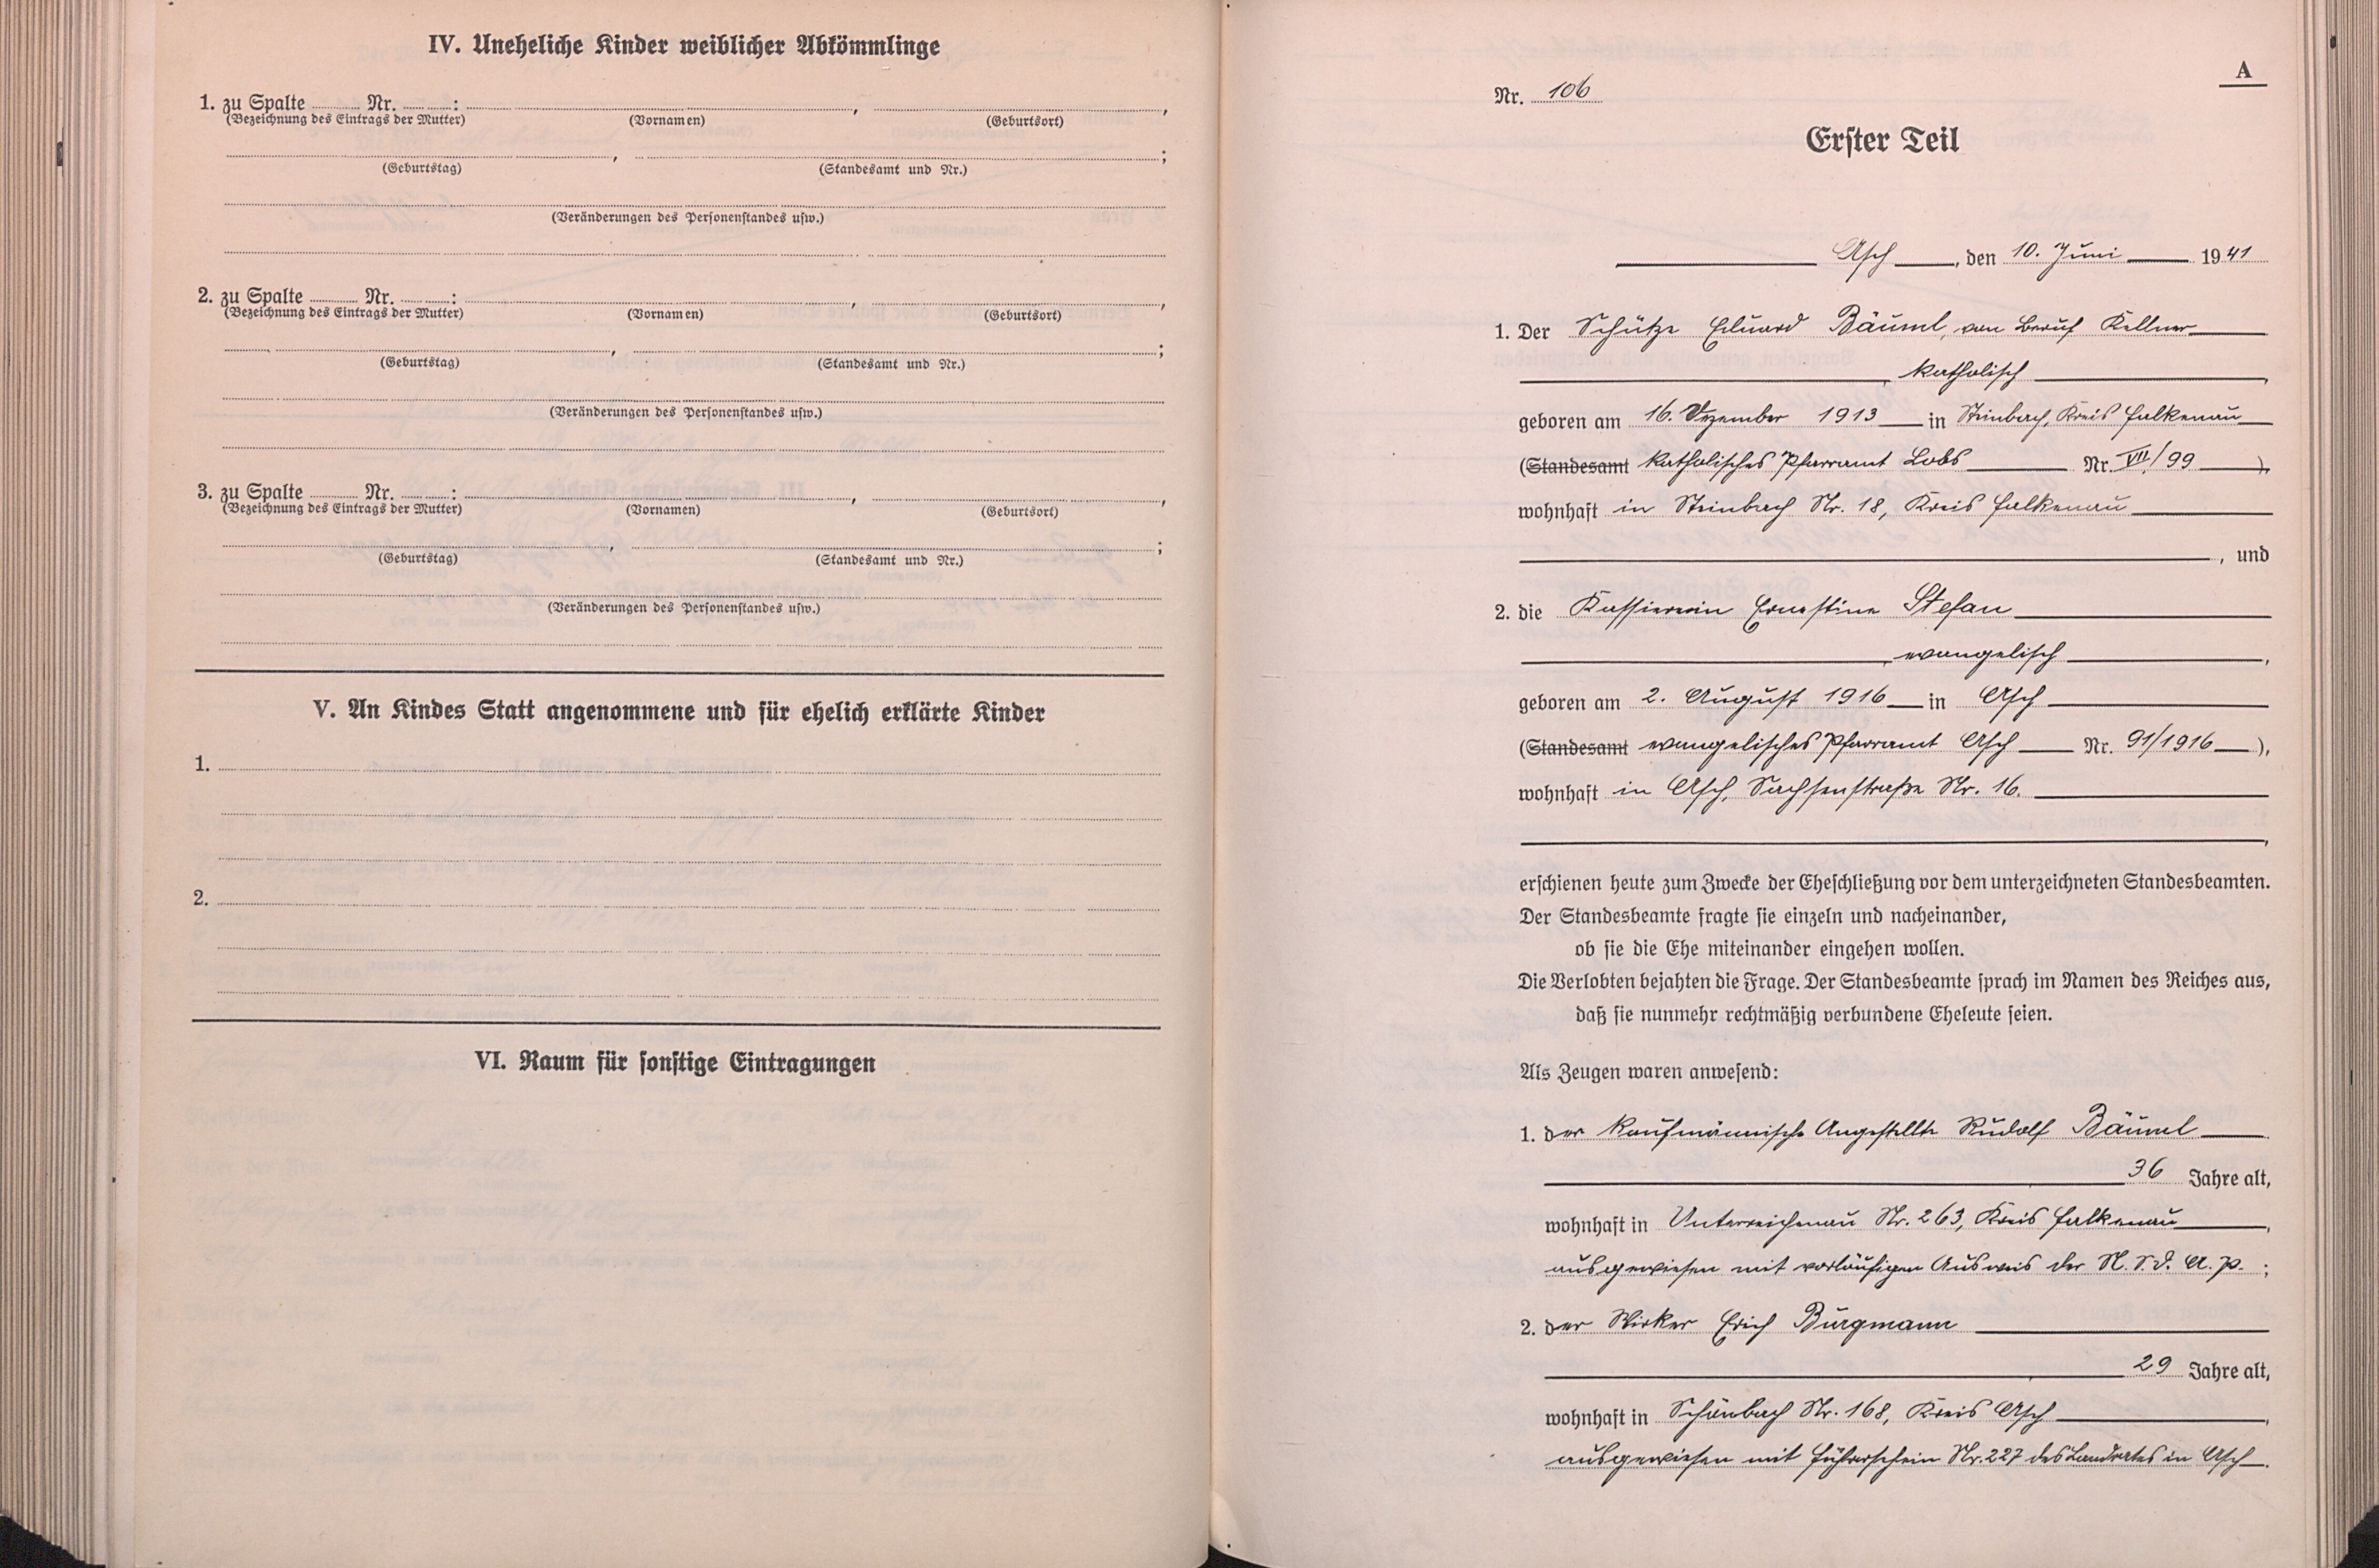 IV. Uneheliche Kinder weiblicher Abkömmlinge
1. zu Spalte Nr. : , ,
(Bezeichnung des Eintrags der Mutter) (Vornamen) (Geburtsort)
, ;
(Geburtstag) (Standesamt und Nr.)
(Veränderungen des Personenstandes usw.)
2. zu Spalte Nr. : , ,
(Bezeichnung des Eintrags der Mutter) (Vornamen) (Geburtsort)
, ;
(Geburtstag) (Standesamt und Nr.)
(Veränderungen des Personenstandes usw.)
3. zu Spalte Nr. : , ,
(Bezeichnung des Eintrags der Mutter) (Vornamen) (Geburtsort)
, ;
(Geburtstag) (Standesamt und Nr.)
(Veränderungen des Personenstandes usw.)
V. An Kindes Statt angenommene und für ehelich erklärte Kinder
1.
2.
VI. Raum für sonstige Eintragungen
A
Nr. 106
Erster Teil
Asch, den 10. Juni 1941
1. Der Schütze Eduard Bäuml, von Beruf Kellner
, katholisch,
geboren am 16. Dezember 1913 in Steinbach, Kreis Falkenau
(Standesamt katholisches Pfarramt Lobs Nr. VII/99),
wohnhaft in Steinbach Nr. 18, Kreis Falkenau
, und
2. die Kassiererin Ernestine Stefan
, evangelisch,
geboren am 2. August 1916 in Asch
(Standesamt evangelisches Pfarramt Asch Nr. 91/1916),
wohnhaft in Asch, Sachsenstraße Nr. 16.
,
erschienen heute zum Zwecke der Eheschließung vor dem unterzeichneten Standesbeamten.
Der Standesbeamte fragte sie einzeln und nacheinander,
ob sie die Ehe miteinander eingehen wollen.
Die Verlobten bejahten die Frage. Der Standesbeamte sprach im Namen des Reiches aus,
daß sie nunmehr rechtmäßig verbundene Eheleute seien.
Als Zeugen waren anwesend:
1. der kaufmännische Angestellte Rudolf Bäuml
36 Jahre alt,
wohnhaft in Unterreichenau Nr. 263, Kreis Falkenau,
ausgewiesen mit vorläufigen Ausweis der N.S.D.A.P. ;
2. der Wirker Erich Burgmann
29 Jahre alt,
wohnhaft in Schönbach Nr. 168, Kreis Asch,
ausgewiesen mit Führerschein Nr. 227 des Landrates in Asch.